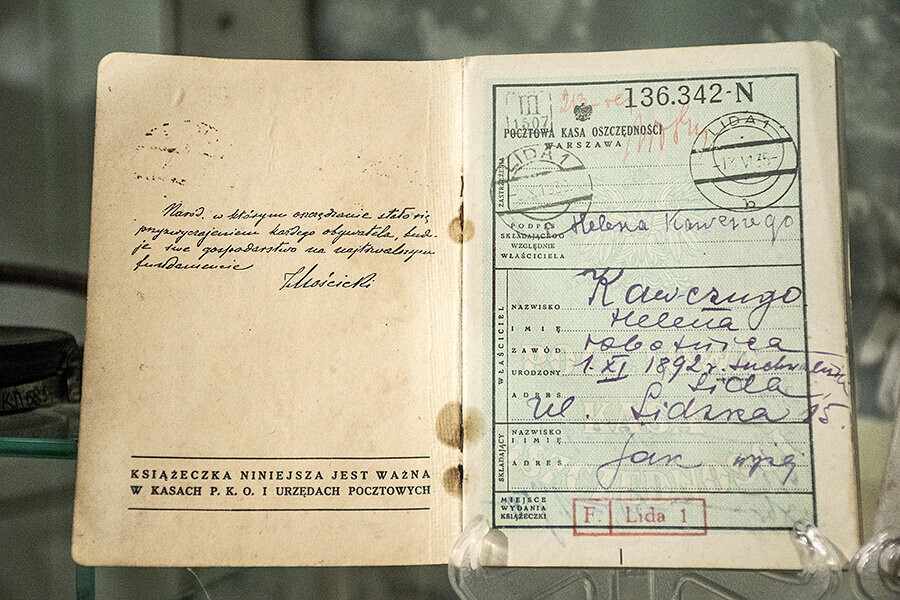 Naród, w którym oszczędzanie stało się
przyzwyczajeniem każdego obywatela, bud-
je swe gospodarstwo na najtrwalszym
fundamencie
IMościcki
KSIĄŻECZKA NINIEJSZA JEST WAŻNA
W KASACH P. K. O. I URZĘDACH POCZTOWYCH
III
1507
136.342-N
POCZTOWA KASA OSZCZĘDNOŚCI
WARSZAWA
LIDA 1
LIDA 1
b
ZASTRZEŻENIA
PODPIS
SKŁADAJĄCEGO
WZGLĘDNIE
WŁAŚCICIELA
Helena Kawczugo
WŁAŚCICIEL
NAZWISKO Kawczugo
IMIĘ Helena
ZAWÓD robotnica
URODZONY 1.XI 1892 r.
ADRES Lida
ul. Lidzka 15
SKŁADAJĄCY
NAZWISKO
IMIĘ
ADRES jak wyżej
MIEJSCE
WYDANIA
KSIĄŻECZKI
F. Lida 1